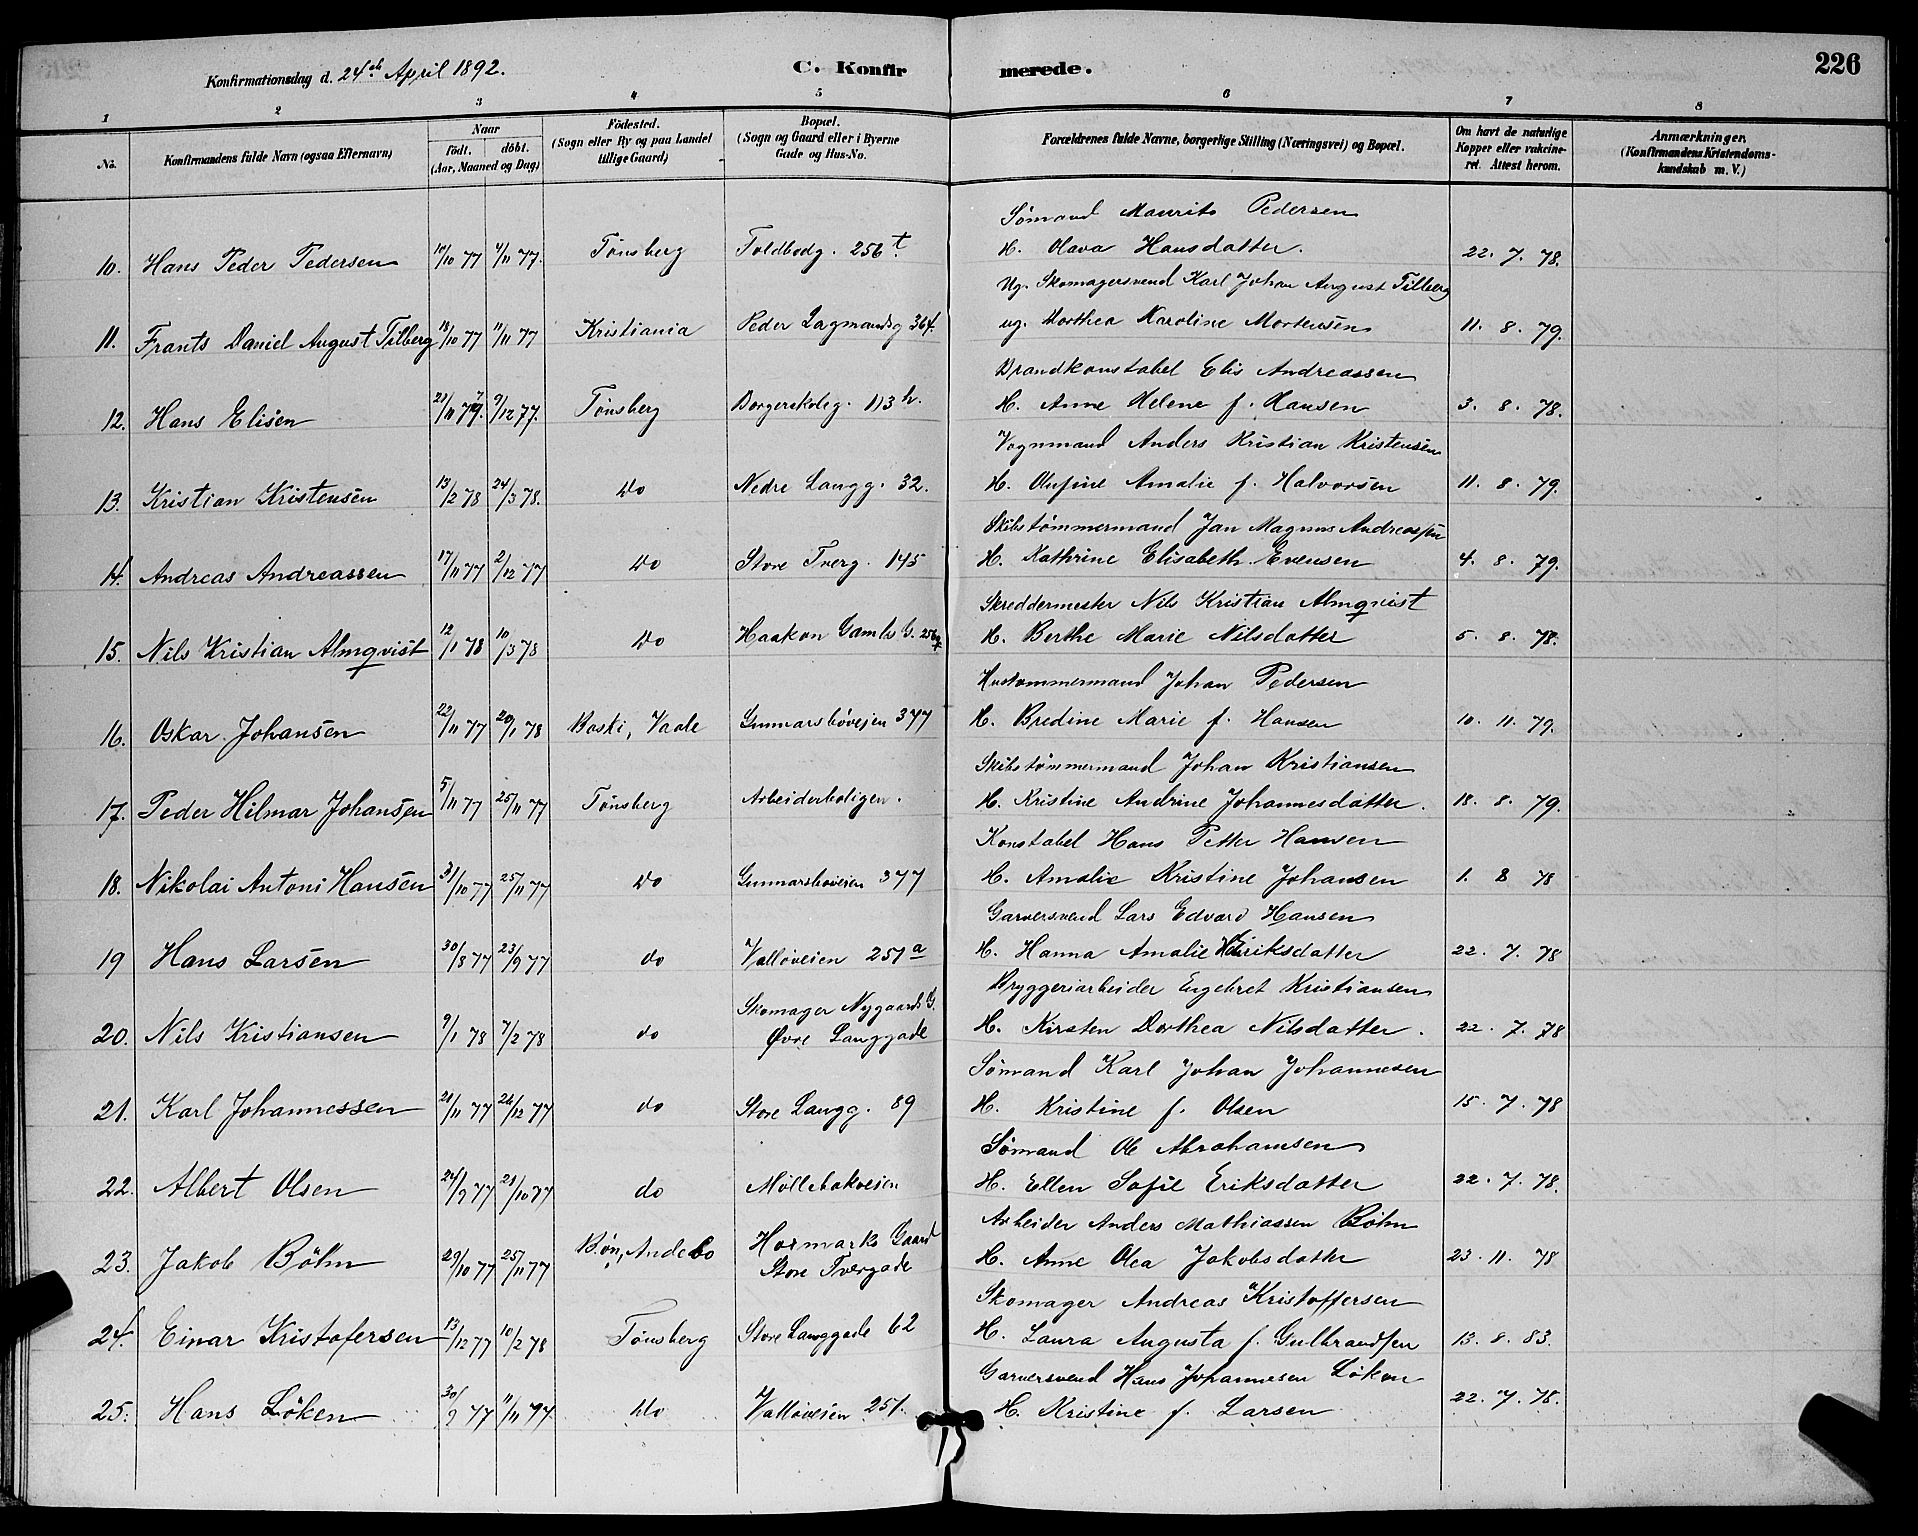 Konfirmationsdag d. 24de April 1892. C. Konfir merede. 226
1 2 3 4 5 6 7 8
No. Konfirmandens fulde Navn (ogsaa Efternavn) Naar født. døbt. (Aar, Maaned og Dag) Fødested. (Sogn eller By og paa Landet tillige Gaard) Bopæl. (Sogn og Gaard eller i Byerne Gade og Hus-No. Forældrenes fulde Navne, borgerlige Stilling (Næringsvei) og Bopæl. Om havt de naturlige Kopper eller vakcineret. Attest herom. Anmærkninger. (Konfirmandens Kristendomskundskab m. V.)
Sømand Maurits Pedersen
10. Hans Peder Pedersen 10/10 77 4/11 77. Tønsberg Toldbodg. 256 t. H. Olava Hansdatter. 22. 7. 78.
Ug. Skomagersvend Karl Johan August Tilberg
11. Frants Daniel August Tilberg 18/10 77 11/11 77 Kristiania Peder Lagmandsg 364. ug. Dorthea Karoline Mortensen 11. 8. 79.
Brandkonstabel Elis Andreassen
12. Hans Elisen 21/11 77. 9/12 77. Tønsberg Borgerskoleg. 113 h. H. Anne Helene f. Hansen 3. 8. 78.
Vognmand Anders Kristian Kristensen
13. Kristian Kristensen 13/2 78 24/3 78. Do Nedre Langg. 32. H. Olufine Amalie f. Halvorsen 11. 8. 79.
Skibstømmermand Jan Magnus Andreassen
14. Andreas Andreassen 17/11 77 2/12 77 Do Store Tverg. 145 H. Kathrine Elisabeth Evensen 4. 8. 79.
Skreddermester Nils Kristian Almqvist
15. Nils Kristian Almqvist 12/1 78 10/3 78 Do Haakon Gamles G. H. Berthe Marie Nilsdatter 5. 8. 78.
Hustømmermand Johan Pedersen
16. Oskar Johansen 22/11 77 20/1 78 Baski, Vaale Gunnarsbøvejen 377 H. Bredine Marie f. Hansen 10. 11. 79.
Skibstømmermand Johan Kristiansen
17. Peder Hilmar Johansen 5/11 77 25/11 77 Tønsberg Arbeiderboligen. H. Kristine Andrine Johannesdatter. 18. 8. 79.
Konstabel Hans Petter Hansen
18. Nikolai Antoni Hansen 31/10 77 25/11 77 Do Gunnarsbøveien 377 H. Amalie Kristine Johansen 1. 8 78
Garversvend Lars Edvard Hansen
19 Hans Larsen 30/8 77 23/9 77 do Valløveien 251 a H. Hanna Amalie Henriksdatter 22. 7. 78
Bryggeriarbeider Engebret Kristiansen
20. Nils Kristiansen 9/1 78 7/2 78 do Skomager Nygaards G. Øvre Langgade H. Kirsten Dorthea Nilsdatter. 22. 7. 78
Sømand Karl Johan Johannesen
21. Karl Johannessen 21/11 77 26/12 77 do Store Langg. 89 H. Kristine f. Olsen 15. 7. 78
Sømand Ole Abrahamsen
22. Albert Olsen 24/9 77 21/10 77 do Møllebakveien H. Ellen Sofie Eriksdatter 22. 7. 78.
Arbeider Anders Mathiassen Bøhn
23. Jakob Bøhn 29/10 77 25/11 77 Bøn, Andebo Hosmarks Gaard Store Tvergade H. Anne Olea Jakobsdatter 23. 11. 78
Skomager Andreas Kristoffersen
24. Einar Kristofersen 13/12 77 10/2 78 Tønsberg Store Langgade 62 H. Laura Augusta f. Gulbrandsen 13. 8. 83.
Garversvend Hans Johannesen Løken
25. Hans Løken 30/9 77 11/11 77. Do Valløveien 251. H. Kristine f. Larsen 22. 7. 78.